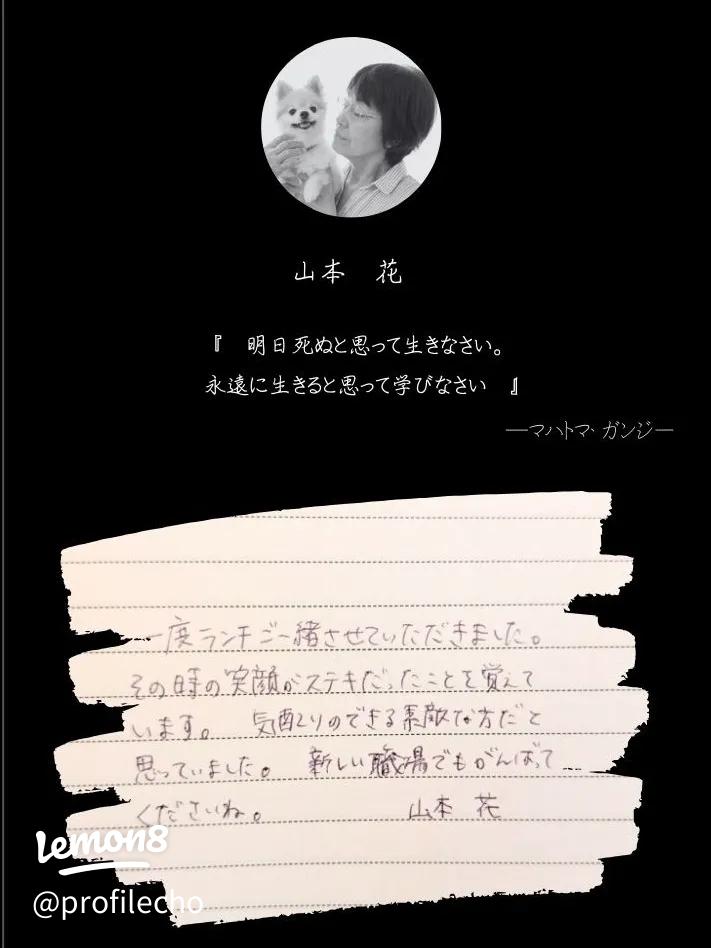 山本　花
『　明日死ぬと思って生きなさい。
永遠に生きると思って学びなさい　』
―マハトマ・ガンジー
一度ランチご一緒させていただきました。
その時の笑顔がステキだったことを覚えて
います。　気配りのできる素敵な方だと
思っていました。　新しい職場でもがんばって
くださいね。　山本　花
Lemon8
@profilecho